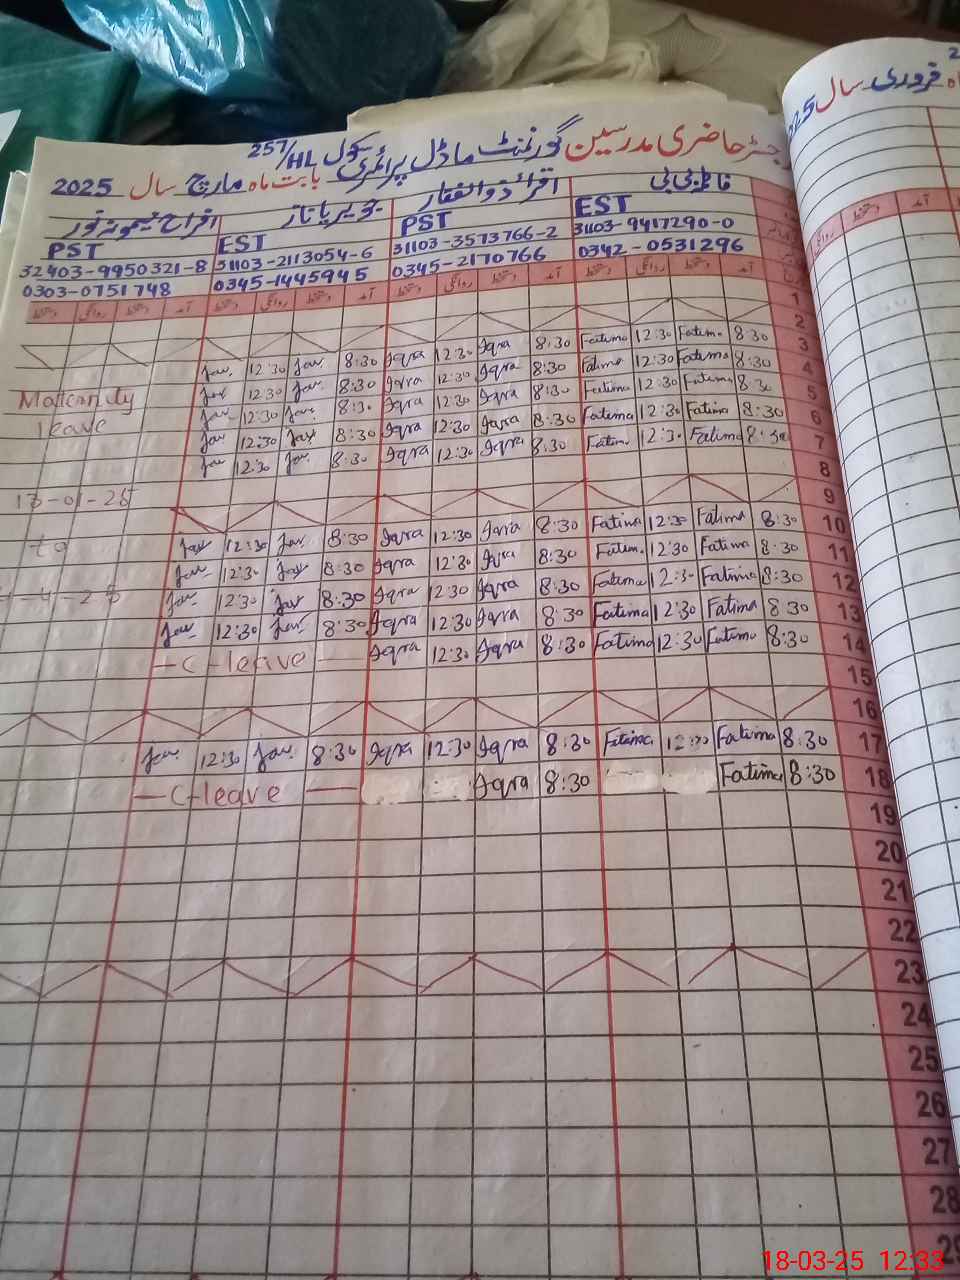 رجسٹر حاضری مدرسین گورنمنٹ ماڈل پرائمری سکول 257/HL بابت ماہ مارچ سال 2025
فروری سال
فاطمہ بی بی
اقراء ذوالفقار
جویریا ناز
EST
PST
EST
PST
31103-9417290-0
31103-3573766-2
31103-2113054-6
32403-9950321-8
0342-0531296
0345-2170766
0345-1445945
0303-0751748
آمد دستخط روانگی دستخط آمد دستخط روانگی دستخط آمد دستخط روانگی دستخط آمد دستخط روانگی دستخط
1
2
Jav. 12:30 Jav. 8:30 Iqra 12:30 Iqra 8:30 Fatima 12:30 Fatima 8:30 3
Jav 12:30 Jav. 8:30 Iqra 12:30 Iqra 8:30 Fatima 12:30 Fatima 8:30 4
Jav 12:30 Jav 8:30 Iqra 12:30 Iqra 8:30 Fatima 12:30 Fatima 8:30 5
Jav 12:30 Jav 8:30 Iqra 12:30 Iqra 8:30 Fatima 12:30 Fatima 8:30 6
Jav 12:30 Jav. 8:30 Iqra 12:30 Iqra 8:30 Fatim 12:30 Fatima 8:30 7
8
9
Jav 12:30 Jav. 8:30 Iqra 12:30 Iqra 8:30 Fatima 12:30 Fatima 8:30 10
Jav 12:30 Jav 8:30 Iqra 12:30 Iqra 8:30 Fatim. 12:30 Fatima 8:30 11
Jav 12:30 Jav 8:30 Iqra 12:30 Iqra 8:30 Fatima 12:30 Fatima 8:30 12
Jav 12:30 Jav. 8:30 Iqra 12:30 Iqra 8:30 Fatima 12:30 Fatima 8:30 13
-C-leave- Iqra 12:30 Iqra 8:30 Fatima 12:30 Fatima 8:30 14
15
16
Jav. 12:30 Jav. 8:30 Iqra 12:30 Iqra 8:30 Fatima 12:30 Fatima 8:30 17
-C-leave- Iqra 8:30 Fatima 8:30 18
19
20
21
22
23
24
25
26
27
28
29
Matarnity
leave
13-01-25
to
-4-25
18-03-25 12:33